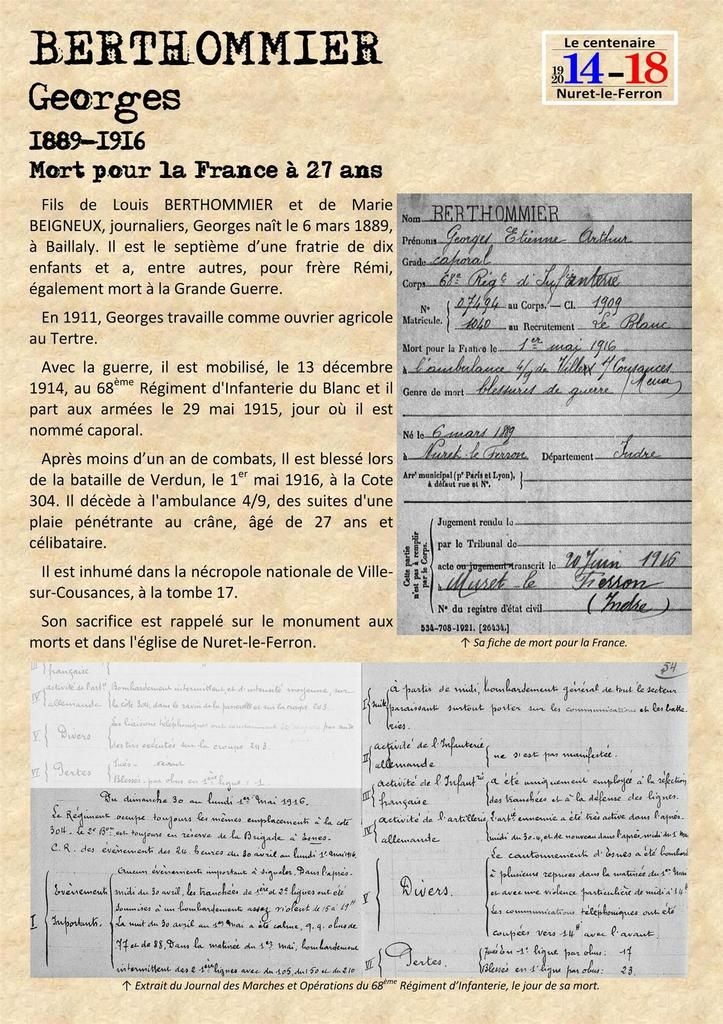 BERTHOMMIER
Georges
1889-1916
Mort pour la France à 27 ans
Le centenaire
1920 14-18
Nuret-le-Ferron
Fils de Louis BERTHOMMIER et de Marie
BEIGNEUX, journaliers, Georges naît le 6 mars 1889,
à Baillaly. Il est le septième d'une fratrie de dix
enfants et a, entre autres, pour frère Rémi,
également mort à la Grande Guerre.
En 1911, Georges travaille comme ouvrier agricole
au Tertre.
Avec la guerre, il est mobilisé, le 13 décembre
1914, au 68ème Régiment d'Infanterie du Blanc et il
part aux armées le 29 mai 1915, jour où il est
nommé caporal.
Après moins d'un an de combats, Il est blessé lors
de la bataille de Verdun, le 1er mai 1916, à la Cote
304. Il décède à l'ambulance 4/9, des suites d'une
plaie pénétrante au crâne, âgé de 27 ans et
célibataire.
Il est inhumé dans la nécropole nationale de Ville-
sur-Cousances, à la tombe 17.
Son sacrifice est rappelé sur le monument aux
morts et dans l'église de Nuret-le-Ferron.
Nom BERTHOMMIER
Prénoms Georges Etienne Arthur
Grade caporal
Corps 68e Régt d'Infanterie
N° Matricule. 07494 au Corps. — Cl. 1909
1040 au Recrutement Le Blanc
Mort pour la France le 1er mai 1916
à l'ambulance 4/9 de Villers s/ Cousances (Meuse)
Genre de mort blessures de guerre
Né le 6 mars 1889
à Nuret-le Ferron Département Indre
Arrt municipal (pr Paris et Lyon), à défaut rue et N°.
Cette partie n'est pas à remplir par le Corps.
Jugement rendu le
par le Tribunal de
acte ou jugement transcrit le 20 Juin 1916
à Nuret-le Ferron
N° du registre d'état civil (Indre)
534-708-1921. [26434.]
↑ Sa fiche de mort pour la France.
III française
IV activité de l'artie allemande Bombardement intermittent et d'intensité moyenne, sur
la côte 304, dans le ravin de la
V Divers Les liaisons téléphoniques ont
des tirs exécutés sur la croupe 203.
VI Pertes Tués : néant
Blessés par obus en 1ère ligne : 1
Du dimanche 30 au lundi 1er Mai 1916.
Le Régiment occupe toujours les mêmes emplacements à la cote
304. le 2e Bon est toujours en réserve de la Brigade à Esnes.
C. R. des évènements des 24 heures du 30 avril au lundi 1er mai 1916
I Evènements Importants. Aucun évènement important à signaler. Dans l'après-
midi du 30 avril, les tranchées de 1ère et 2e lignes ont été
soumises à un bombardement assez violent de 15 à 19H
La nuit du 30 avril au 1er mai a été calme, q.q. obus de
77 et de 88, Dans la matinée du 1er mai, bombardement
intermittent des 2 1ères lignes avec du 105, du 150 et du 210
54
I (suite) à partir de midi, bombardement général de tout le secteur
paraissant surtout porter sur les communications et les batte-
ries.
II activité de l'Infanterie allemande ne s'est pas manifestée.
III activité de l'Infantrie française a été uniquement employée à la réfection
des tranchées et à la défense des lignes.
IV activité de l'artillerie allemande l'artie ennemie a été très active dans l'après-
midi du 30-4, et de nouveau dans l'après-midi du 1er mai
V Divers. Le cantonnement d'Esnes a été bombardé
à plusieurs reprises dans la matinée du 1er mai
et avec une violence particulière de midi à 14H
Les communications téléphoniques ont été
coupées vers 14H avec l'avant.
VI Pertes. Tués en 1e ligne par obus : 17
Blessés en 1e ligne par obus : 23.
↑ Extrait du Journal des Marches et Opérations du 68ème Régiment d'Infanterie, le jour de sa mort.